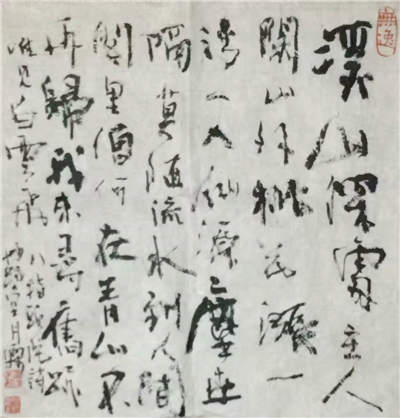 山深處主人
山外桃花一
灣一入塵世
隔莫隨流水到人間
里僧何在青山不
再歸我來尋舊跡
唯見白雲飛 八指頭陀詩